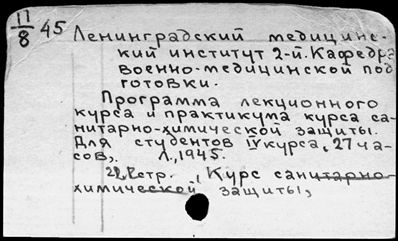 11
8
45
Ленинградский медицинс-
кий институт 2-й. Кафедра
военно-медицинской под
готовки.
Программа лекционного
курса и практикума курса са-
нитарно-химической защиты.
Для студентов IV курса, 27 ча-
сов,. Л.,1945.
стр. , Курс санитарно-
химической защиты,